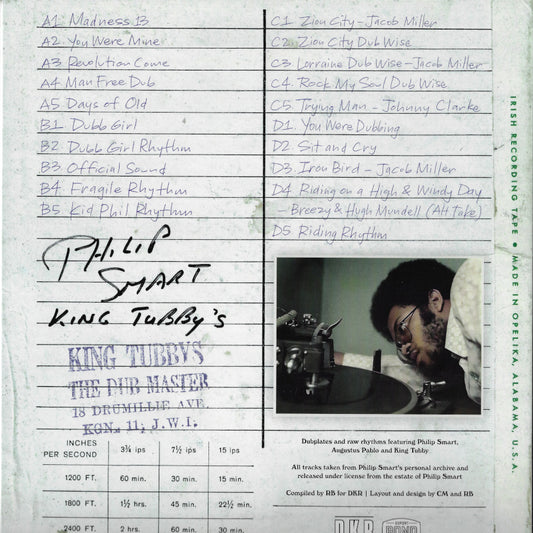 A1. Madness 13
A2. You Were Mine
A3 Revolution Come
A4 Man Free Dub
A5 Days of Old
B1. Dubb Girl
B2. Dubb Girl Rhythm
B3 Official Sound
B4 Fragile Rhythm
B5. Kid Phil Rhythm
C1 Zion City - Jacob Miller
C2. Zion City Dub Wise
C3 Lorraine Dub Wise - Jacob Miller
C4. Rock My Soul Dub Wise
C5. Trying Man - Johnny Clarke
D1. You Were Dubbing
D2 Sit and Cry
D3. Iron Bird - Jacob Miller
D4 Riding on a High & Windy Day
- Breezy & Hugh Mundell (Alt Take)
D5 Riding Rhythm
PHILIP
SMART
KING TUBBY'S
KING TUBBYS
THE DUB MASTER
18 DRUMILLIE AVE.
KGN. 11, J.W.I.
INCHES
PER SECOND 3¾ ips 7½ ips 15 ips
1200 FT. 60 min. 30 min. 15 min.
1800 FT. 1½ hrs. 45 min. 22½ min.
2400 FT. 2 hrs. 60 min. 30 min.
Dubplates and raw rhythms featuring Philip Smart,
Augustus Pablo and King Tubby
All tracks taken from Philip Smart's personal archive and
released under license from the estate of Philip Smart
Compiled by RB for DKR | Layout and design by CM and RB
DKR
IRISH RECORDING TAPE ● MADE IN OPELIKA, ALABAMA, U.S.A.